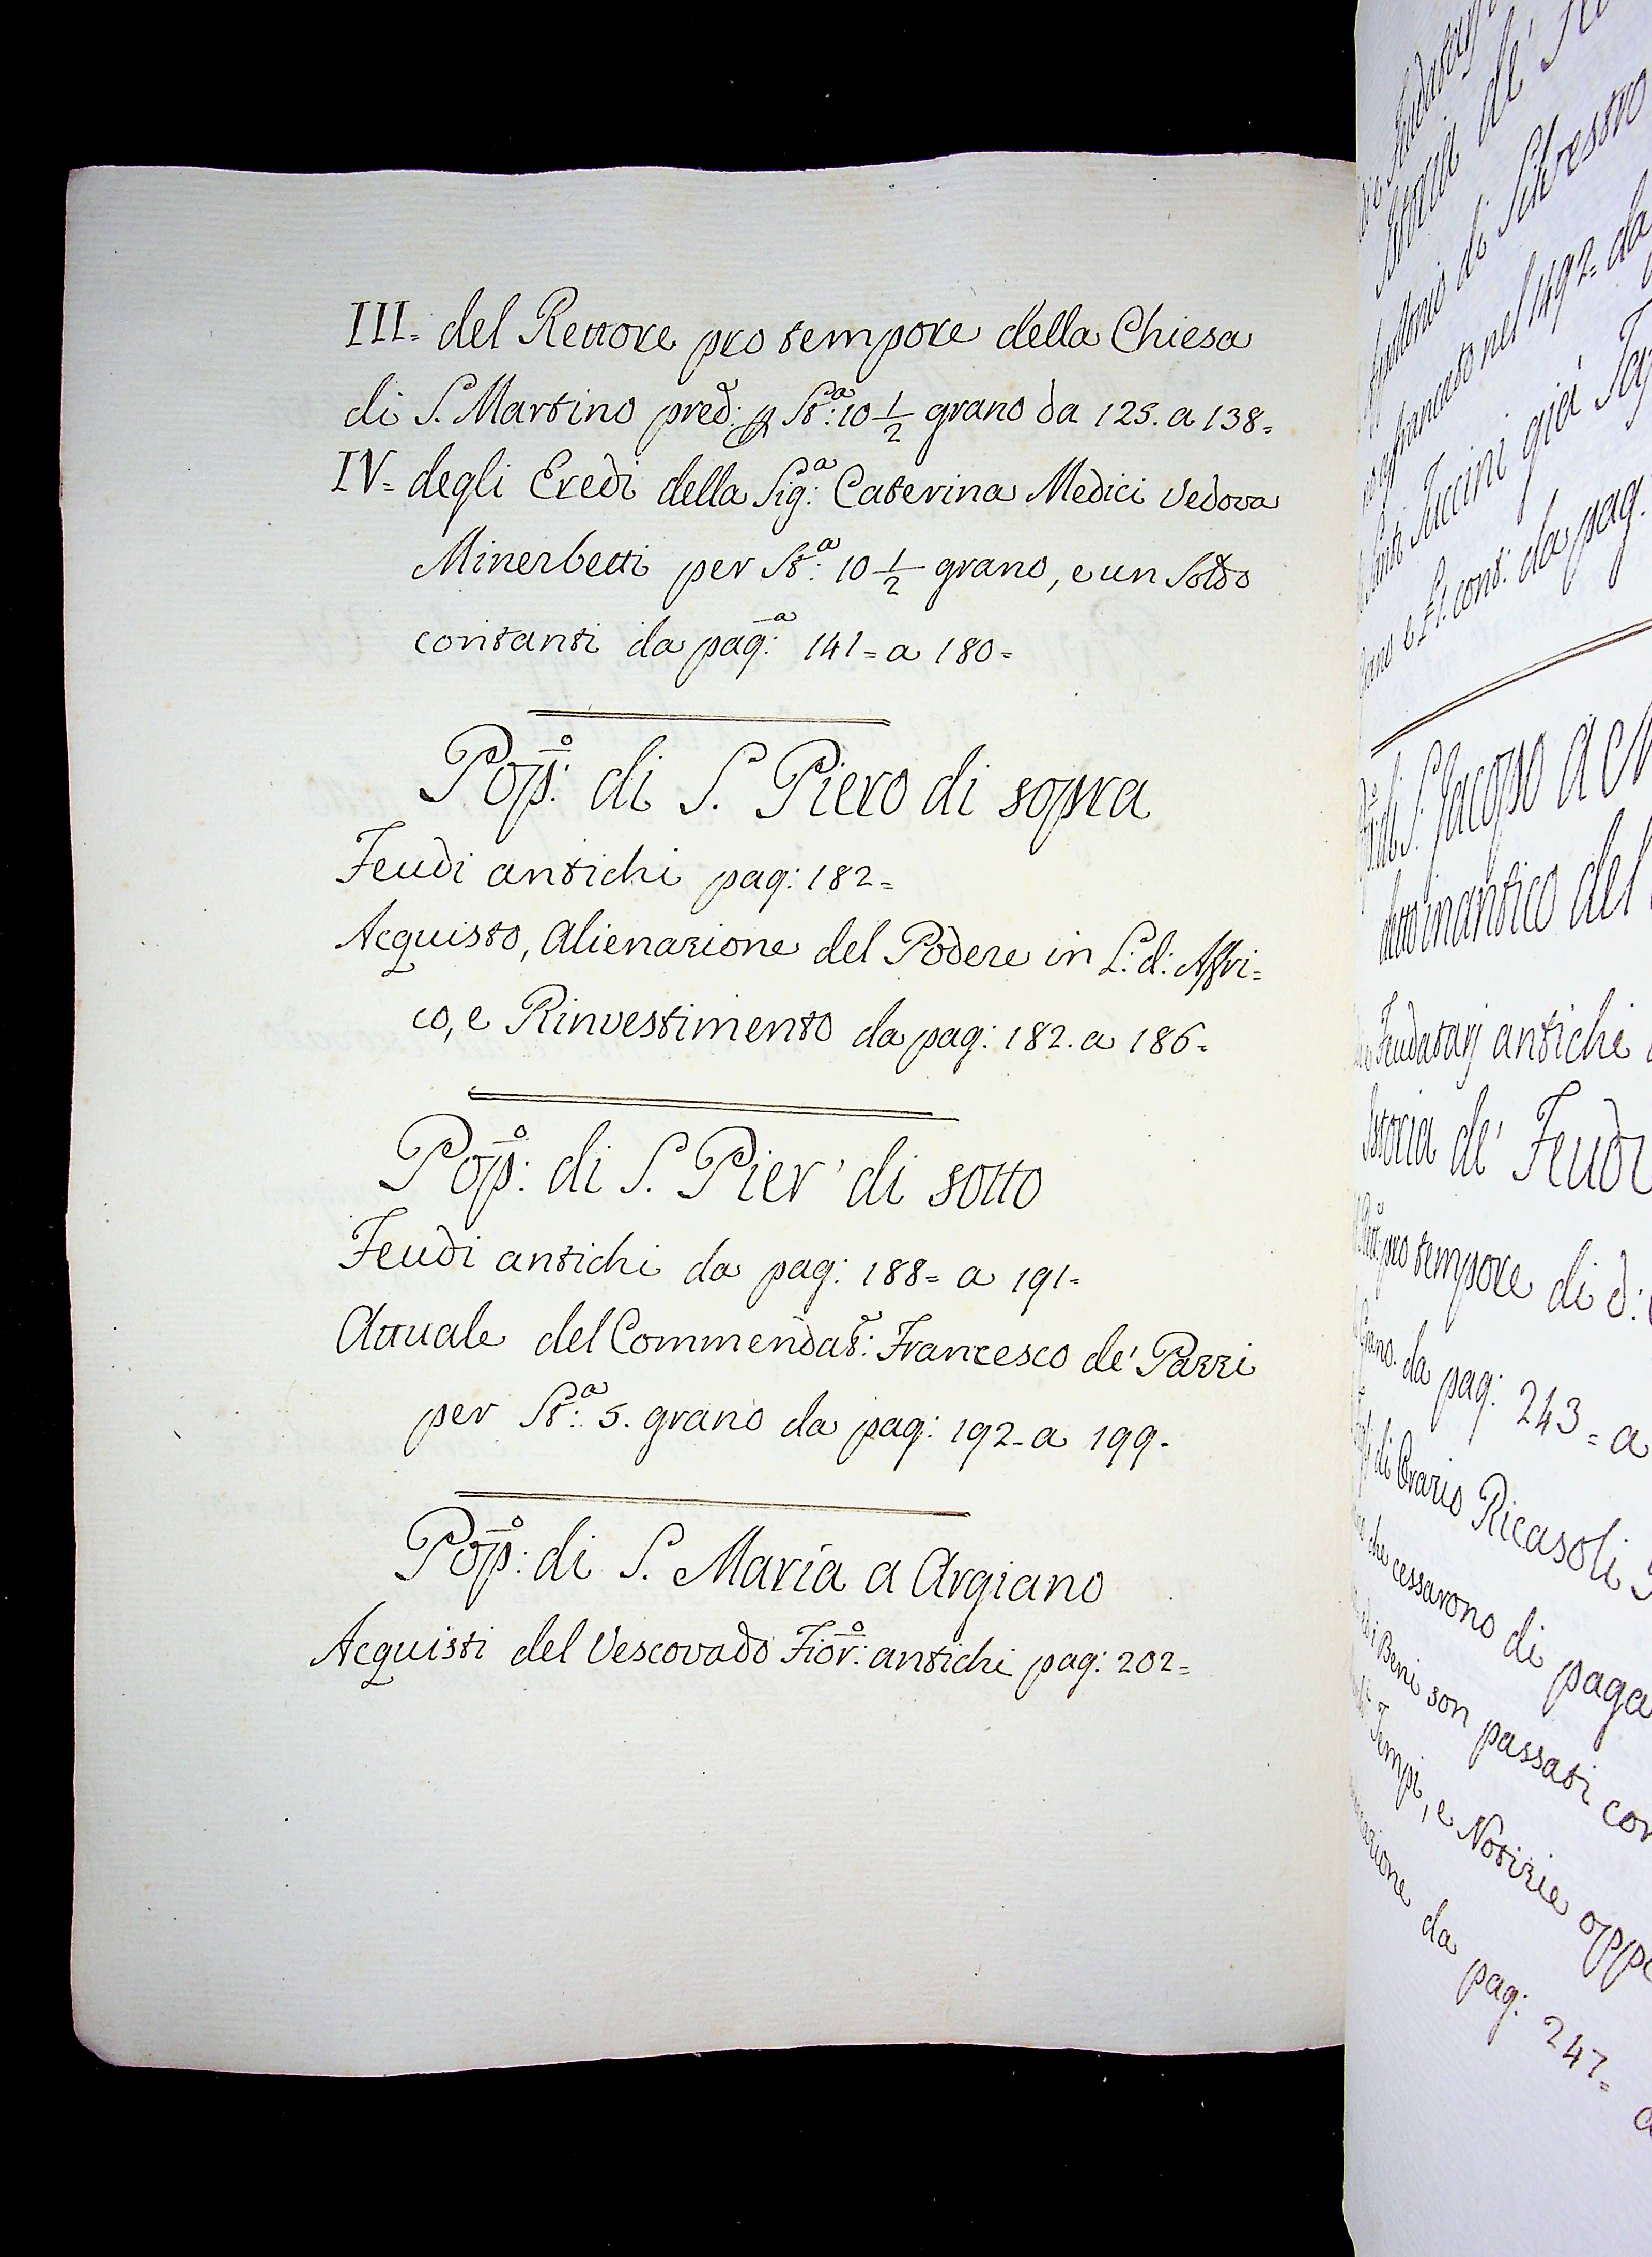 III= del Rettore pro tempore della Chiesa
di S. Martino pred: p St:ª 10 1/2 grano da 125. a 138=
IV= degli Eredi della Sig:ª Caterina Medici Vedova
Minerbetti per St:ª 10 1/2 grano, e un Soldo
contanti da pag:ª 141= a 180=
Pop:º di S. Piero di sopra
Feudi antichi pag: 182=
Acquisto, Alienazione del Podere in L: d: Affri=
co, e Rinvestimento da pag: 182. a 186=
Pop:º di S. Pier' di sotto
Feudi antichi da pag: 188= a 191=
Attuale del Commendat:r Francesco de' Pazzi
per St:ª 5. grano da pag: 192= a 199=
Pop:º di S. Maria a Argiano
Acquisti del Vescovado Fior:º antichi pag: 202=
Istoria de'
di Silvestro
affrancato nel 1492= da
Santi Tuccini già
e £1. cont: da pag.
di S. Jacopo a
detto in antico del
Feudatarj antichi
Istoria de' Feudi
pro tempore di d:
Grano. da pag: 243= a
di Orazio Ricasoli
che cessarono di paga
Beni son passati con
Tempi, e Notizie oppo
da pag: 247= a